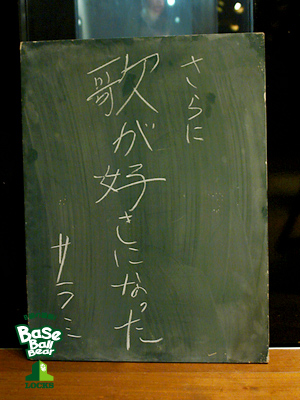 さらに
歌が好きになった
サラミ
Base
Ball
Bear
LOCKS